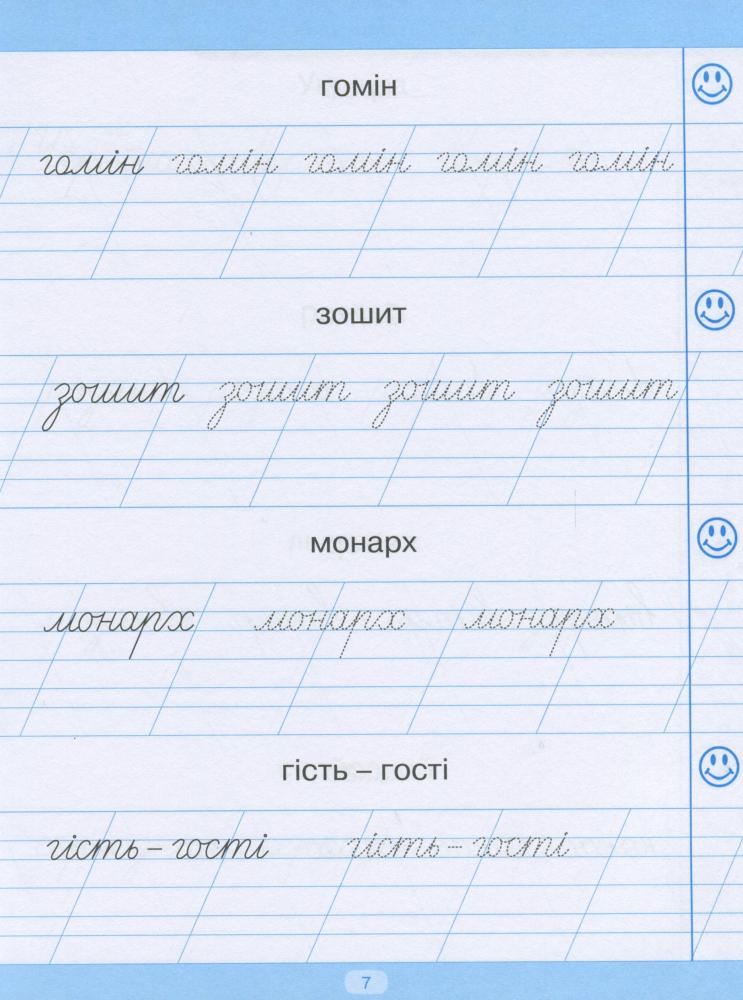 гомін
гомін гомін гомін гомін гомін
зошит
зошит зошит зошит зошит
монарх
монарх монарх монарх
гість – гості
гість – гості гість – гості
7